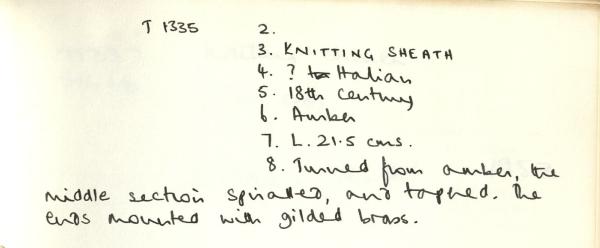 T 1335 2.
3. KNITTING SHEATH
4. ? Italian
5. 18th century
6. Amber
7. L. 21.5 cms.
8. Turned from amber, the
middle section spiralled, and tapered. The
ends mounted with gilded brass.